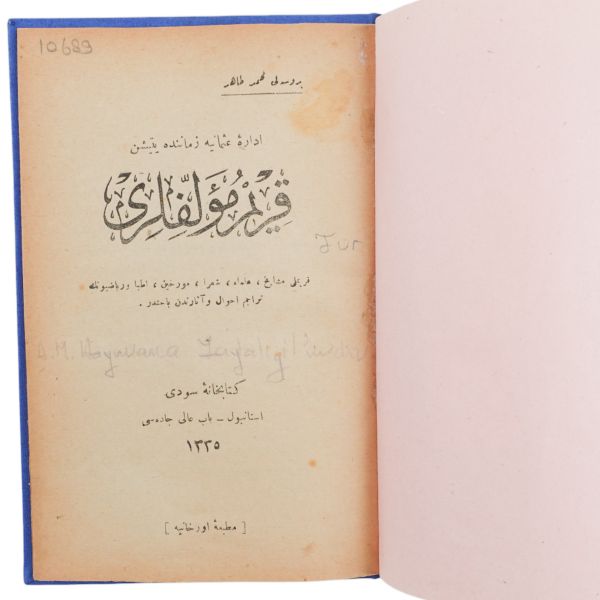 10689
بروسه‌لی محمد طاهر
ادارهٔ عثمانیه زماننده یتیشن
قریم مؤلفلری
قریملی مشایخ ، علماء ، شعرا ، مورخین ، اطبا و ریاضیونك
تراجم احوال و آثارندن باحثدر .
Tur
A. M.
کتابخانهٔ سودی
استانبول ـ باب عالی جاده‌سی
١٣٣٥
[ مطبعهٔ اورخانیه ]